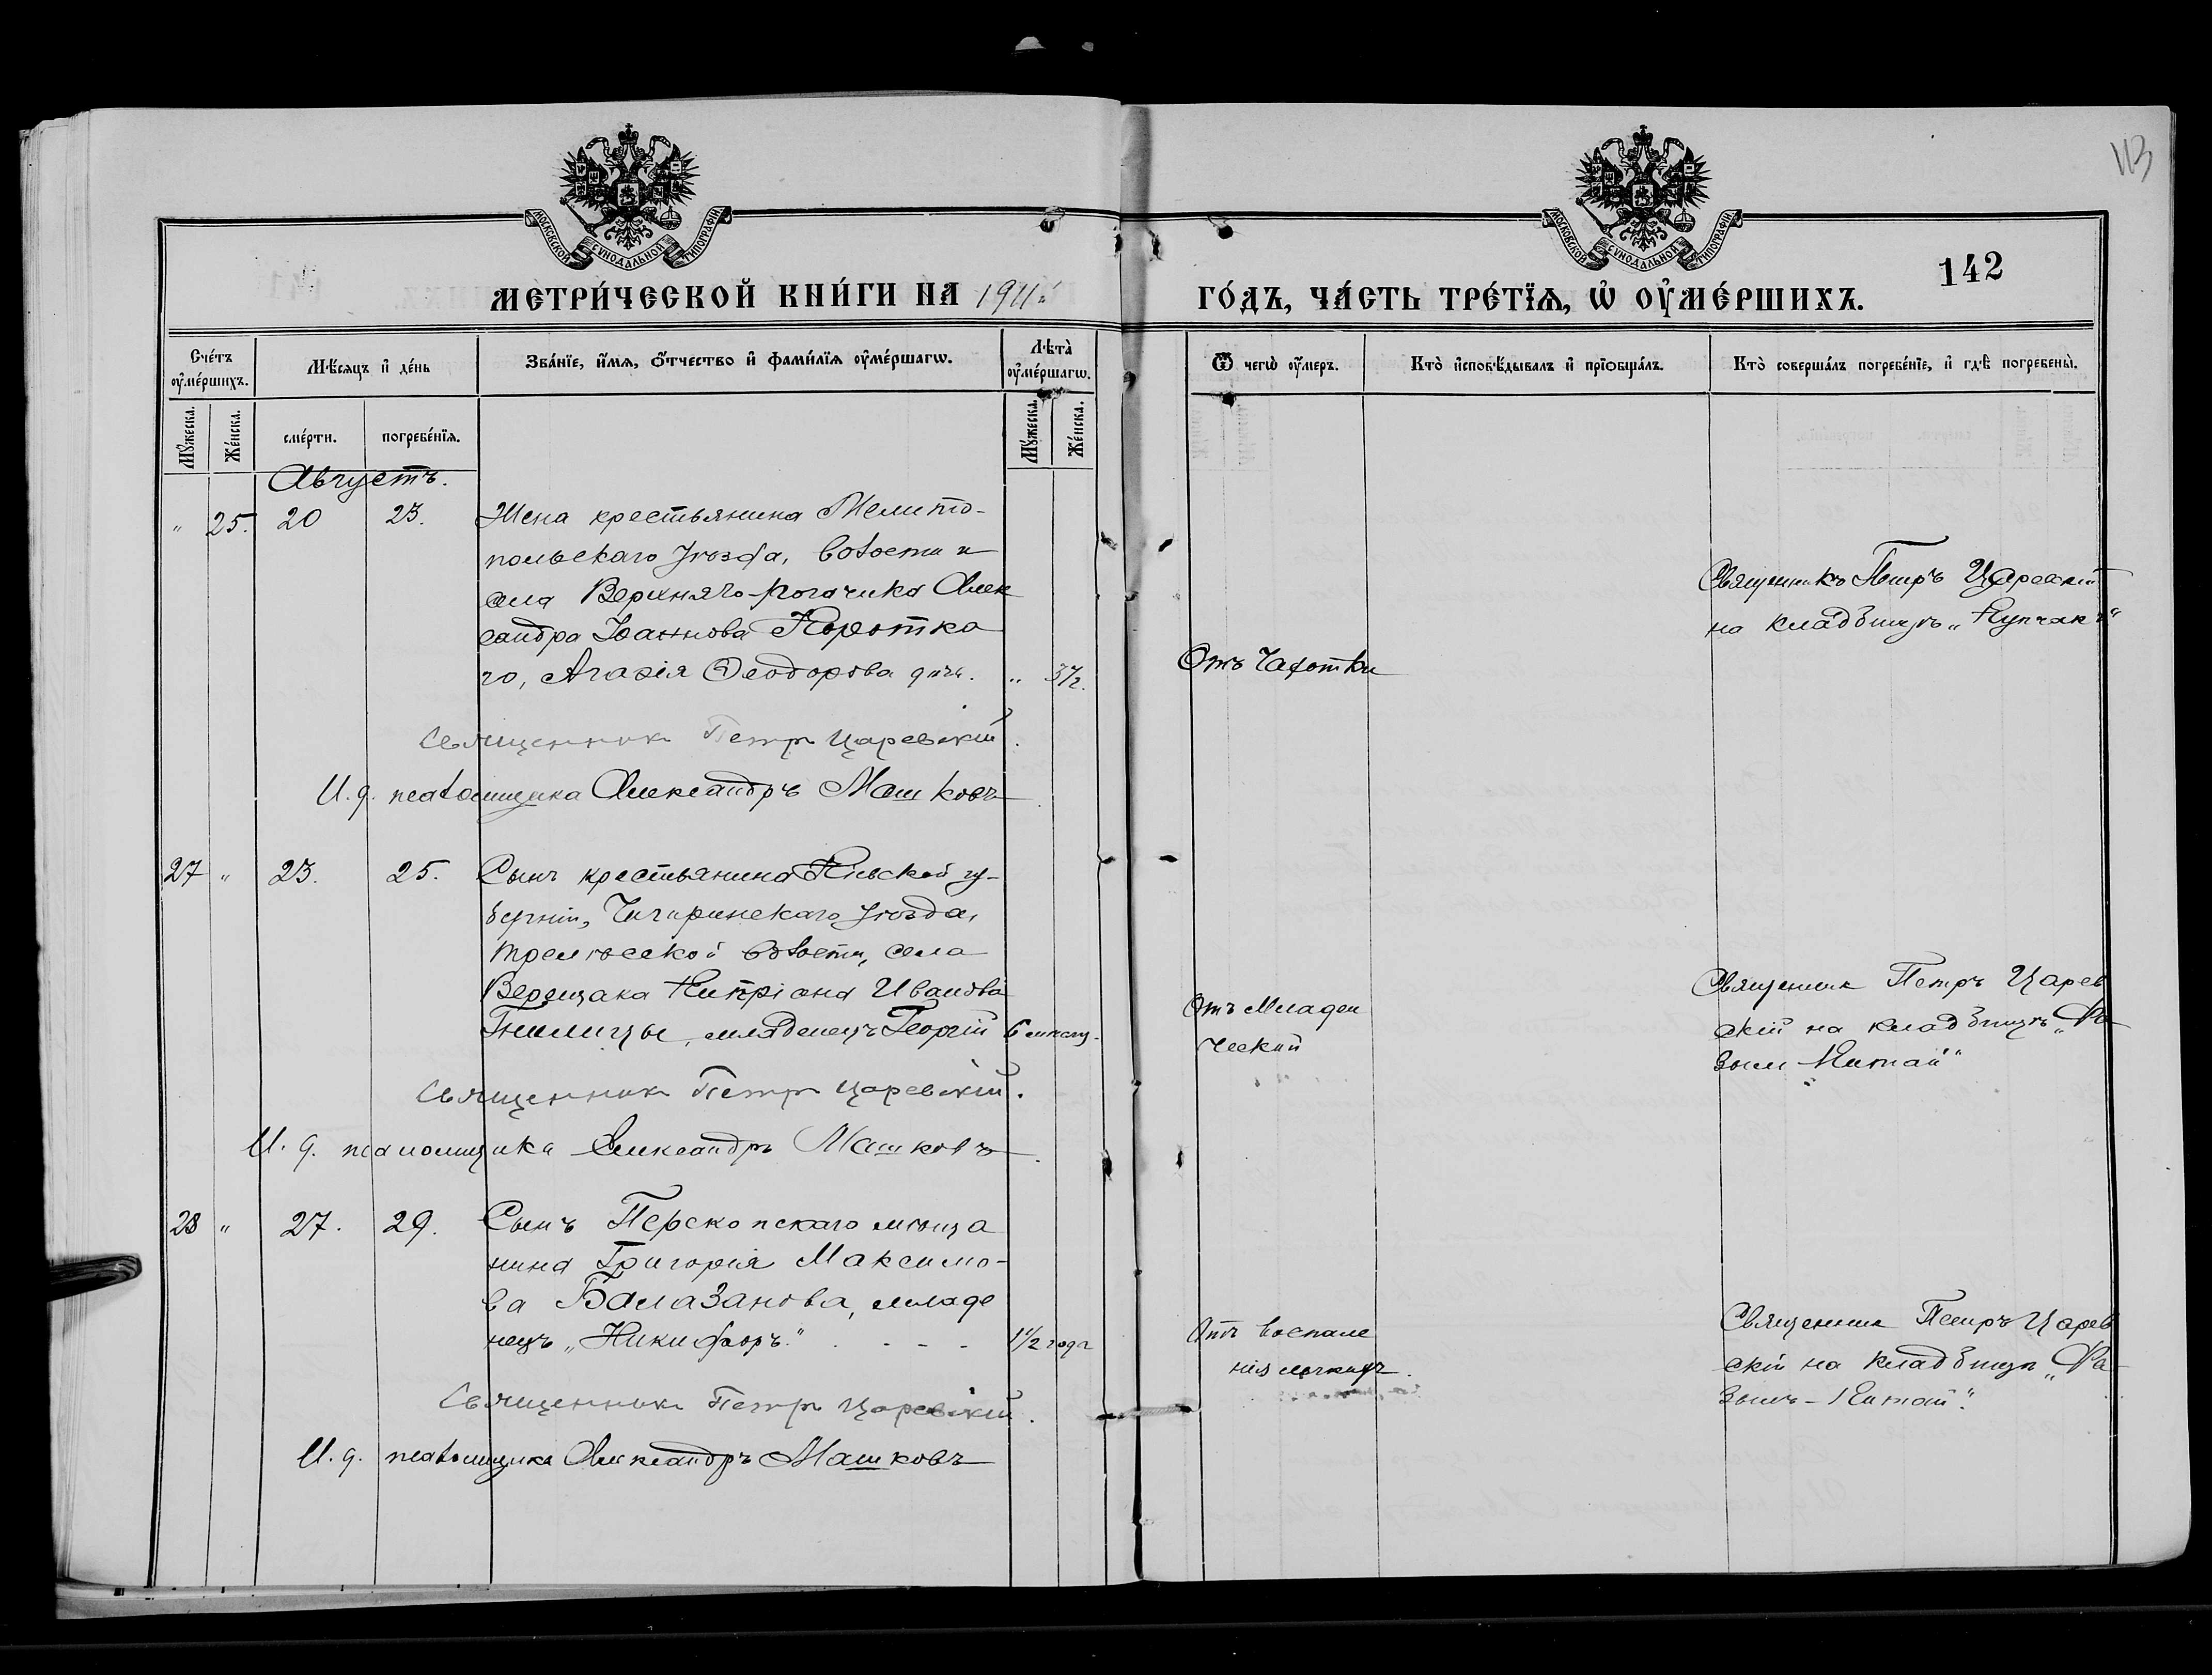 113
МОСКОВСКОЙ СѴНОДАЛЬНОЙ ТИПОГРАФІИ
МОСКОВСКОЙ СѴНОДАЛЬНОЙ ТИПОГРАФІИ
142
МЕТРИ́ЧЕСКОЙ КНИ́ГИ НА 1911й ГО́ДЪ, ЧА́СТЬ ТРЕ́ТЇѦ, Ѡ҆ ОУ҆МЕ́РШИХЪ.
Сче́тъ оу҆ме́ршихъ.
Мѣ́сяцъ и҆ де́нь
Зва́нїе, и҆́мѧ, ѻ҆́тчество и҆ фами́лїѧ оу҆ме́ршагѡ.
Лѣ̑та оу҆ме́ршагѡ.
Ѿ чегѡ̀ оу҆́меръ.
Кто̀ и҆сповѣ́дывалъ и҆ прїѻбща́лъ.
Кто̀ соверша́лъ погребе́нїе, и҆ гдѣ̀ погребены̀.
Мꙋ́жеска.
Же́нска.
сме́рти.
погребе́нїѧ.
Мꙋ́жеска.
Же́нска.
Августъ.
" 25. 20 23. Жена крестьянина Мелито-
польскаго Уѣзда, волости и
села Верхняго-Рогачика Алек
сандра Іоаннова Коротка
го, Агаѳія Ѳеодорова " 37.
Отъ Чахотки
Священникъ Петръ Царевскій
на кладбищѣ "Купчакъ"
Священник Петр Царевскій.
И. д. псаломщика Александръ Машковъ
27 " 23. 25. Сынъ крестьянина Кіевской гу-
берніи, Чигиринскаго Уѣзда,
Трелѣсской волости, села
Верещака Кипріана Иванова
Гнилицы, младенецъ Георгій 6 мѣсяц.
Отъ Младен
ческой
Священник Петръ Царев
скій на кладбищѣ "Ка
зыл-Китай"
Священник Петр Царевскій.
И. д. псаломщика Александръ Машковъ.
28 " 27. 29. Сынъ Перекопскаго мѣща
нина Григорія Максимо-
ва Балазанова, младе
нецъ "Никифоръ." - - - 1½ года
Отъ воспале
нія легкихъ.
Священник Петръ Царев
скій на кладбищѣ "Ка
зылъ-Китай".
Священник Петр Царевскій.
И. д. псаломщика Александръ Машковъ